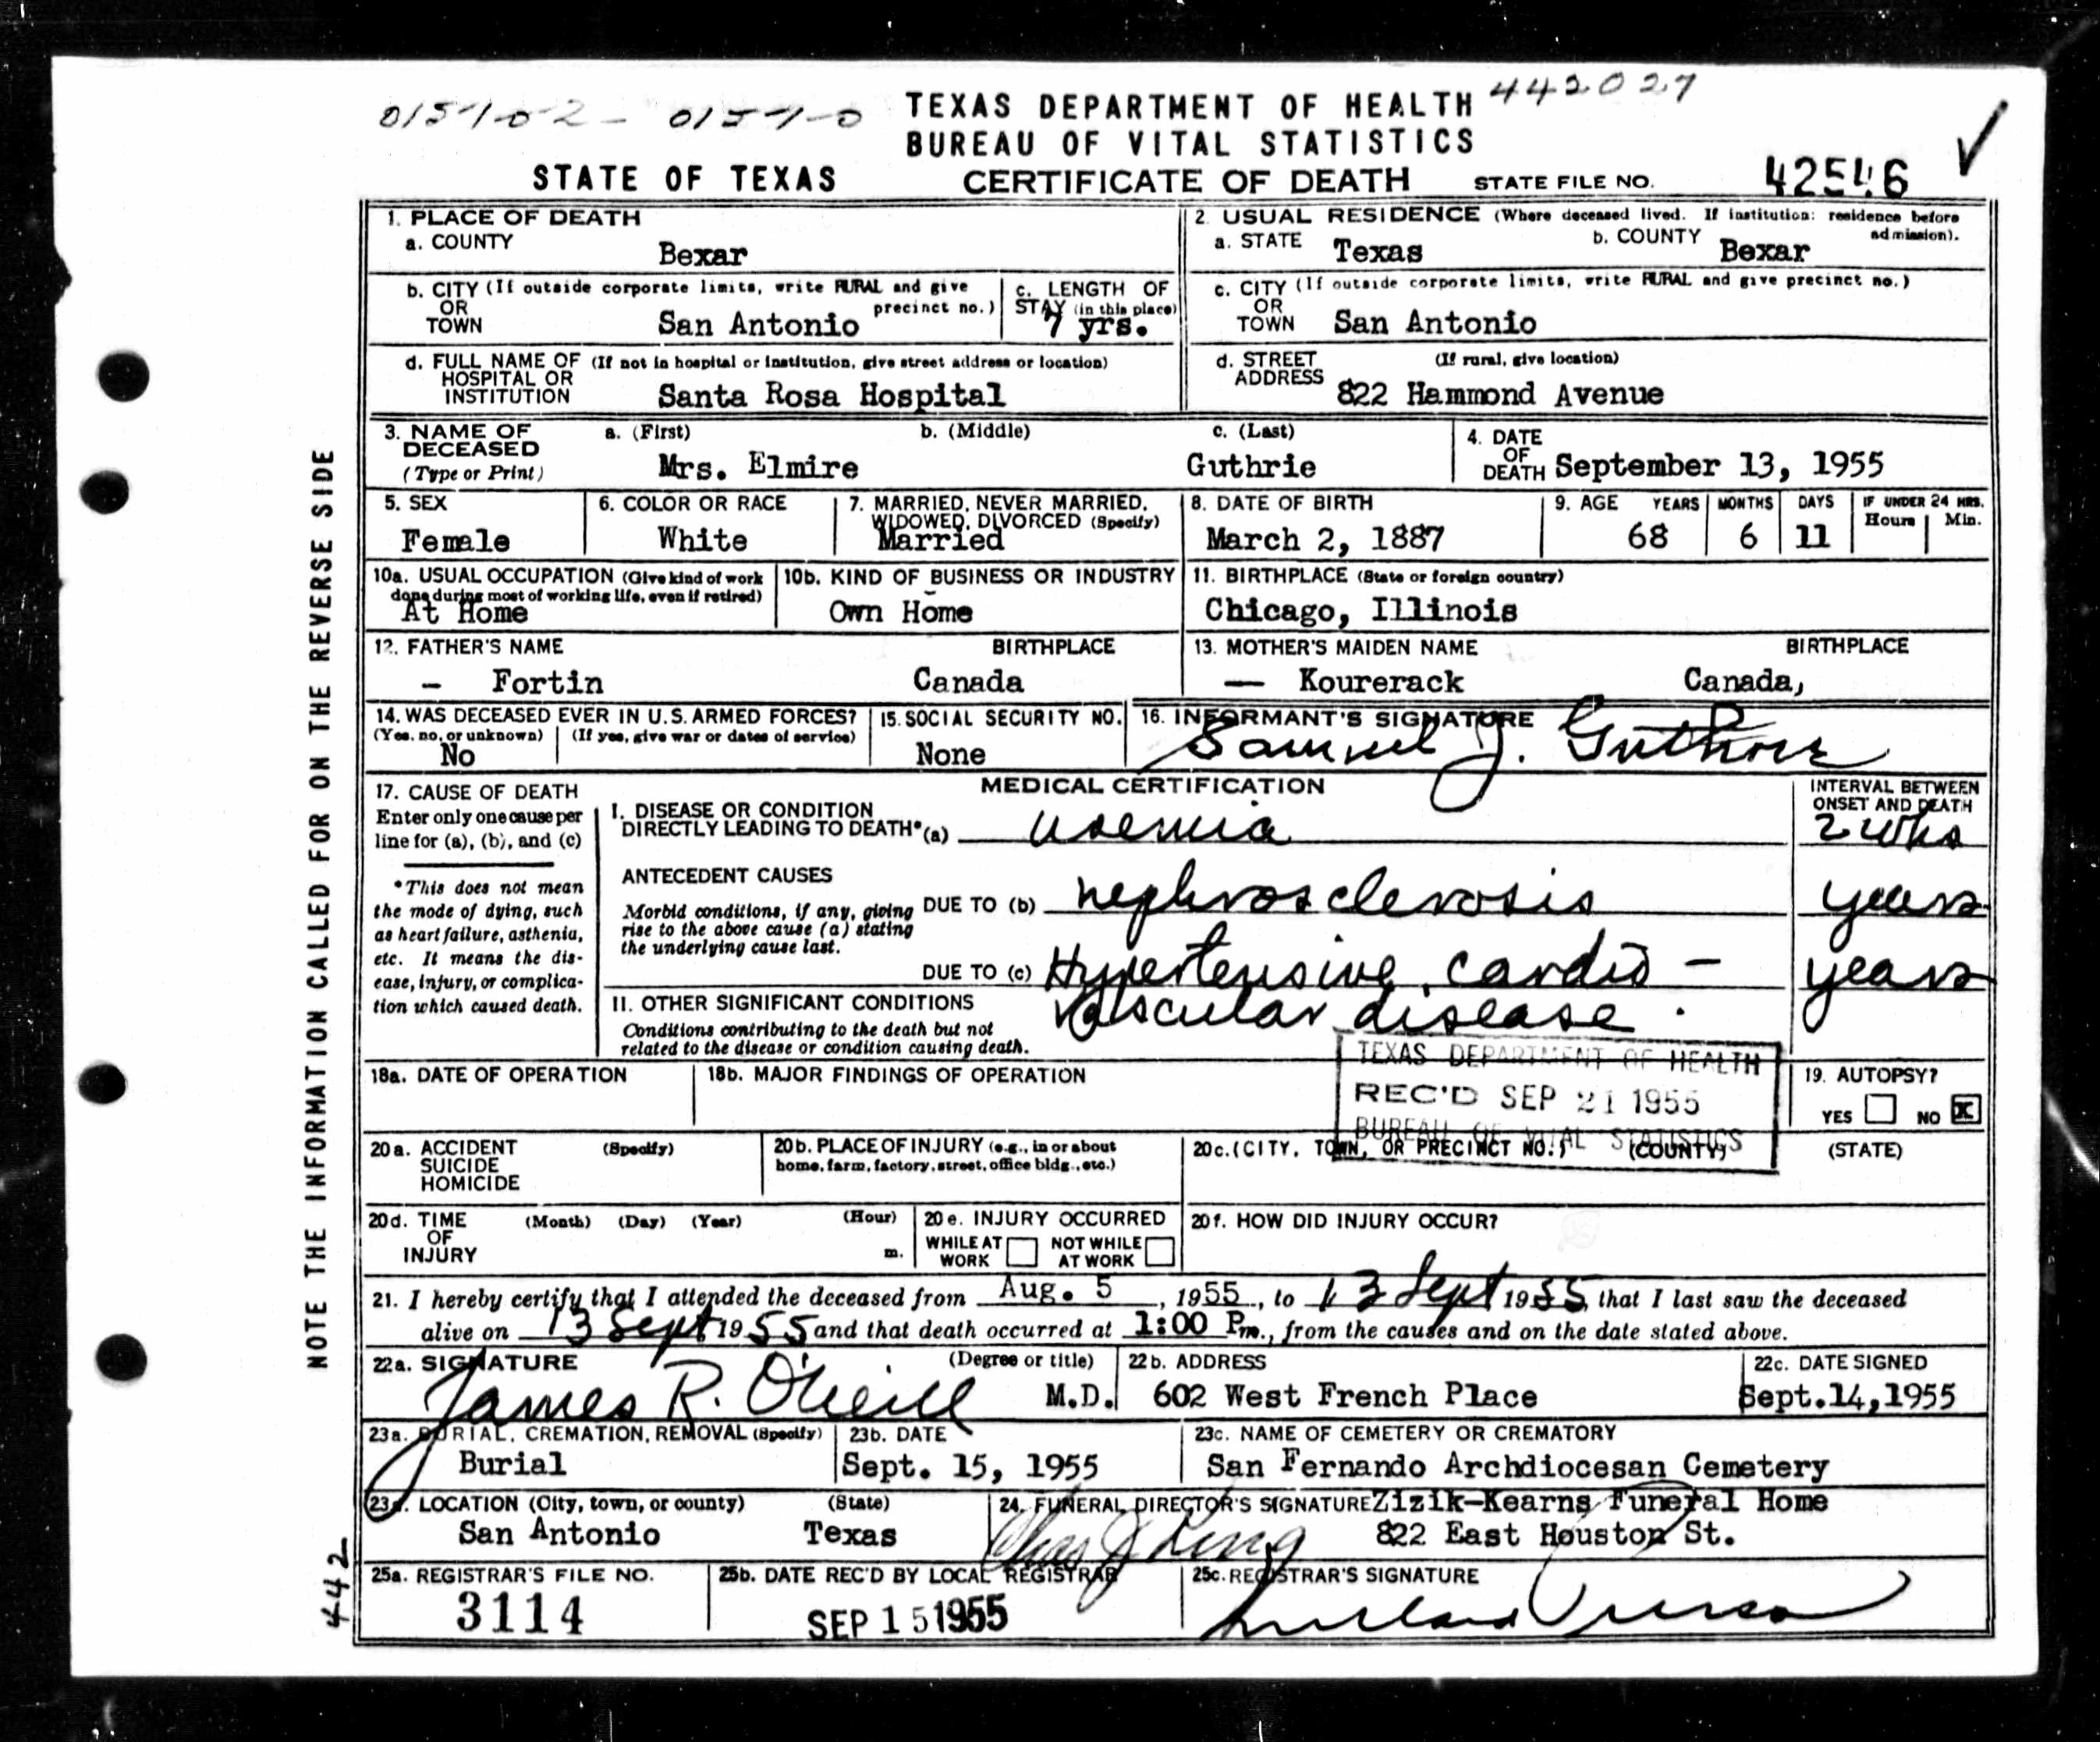 015702 - 01570
TEXAS DEPARTMENT OF HEALTH 442027
BUREAU OF VITAL STATISTICS
STATE OF TEXAS CERTIFICATE OF DEATH STATE FILE NO. 42546
1. PLACE OF DEATH
a. COUNTY Bexar
2. USUAL RESIDENCE (Where deceased lived. If institution: residence before admission).
a. STATE Texas b. COUNTY Bexar
b. CITY (If outside corporate limits, write RURAL and give precinct no.)
OR
TOWN San Antonio
c. LENGTH OF
STAY (in this place)
7 yrs.
c. CITY (If outside corporate limits, write RURAL and give precinct no.)
OR
TOWN San Antonio
d. FULL NAME OF (If not in hospital or institution, give street address or location)
HOSPITAL OR
INSTITUTION Santa Rosa Hospital
d. STREET (If rural, give location)
ADDRESS 822 Hammond Avenue
3. NAME OF DECEASED
(Type or Print)
a. (First) b. (Middle) c. (Last)
Mrs. Elmire Guthrie
4. DATE
OF
DEATH September 13, 1955
5. SEX
Female
6. COLOR OR RACE
White
7. MARRIED, NEVER MARRIED,
WIDOWED, DIVORCED (Specify)
Married
8. DATE OF BIRTH
March 2, 1887
9. AGE YEARS MONTHS DAYS IF UNDER 24 HRS.
Hours Min.
68 6 11
10a. USUAL OCCUPATION (Give kind of work
done during most of working life, even if retired)
At Home
10b. KIND OF BUSINESS OR INDUSTRY
Own Home
11. BIRTHPLACE (State or foreign country)
Chicago, Illinois
12. FATHER'S NAME BIRTHPLACE
- Fortin Canada
13. MOTHER'S MAIDEN NAME BIRTHPLACE
— Kourerack Canada,
14. WAS DECEASED EVER IN U.S. ARMED FORCES?
(Yes, no, or unknown) (If yes, give war or dates of service)
No
15. SOCIAL SECURITY NO.
None
16. INFORMANT'S SIGNATURE
Samuel J. Guthrie
17. CAUSE OF DEATH
Enter only one cause per
line for (a), (b), and (c)
*This does not mean
the mode of dying, such
as heart failure, asthenia,
etc. It means the dis-
ease, injury, or complica-
tion which caused death.
MEDICAL CERTIFICATION
INTERVAL BETWEEN
ONSET AND DEATH
I. DISEASE OR CONDITION
DIRECTLY LEADING TO DEATH* (a) uremia 2 wks
ANTECEDENT CAUSES
Morbid conditions, if any, giving
rise to the above cause (a) stating
the underlying cause last.
DUE TO (b) nephrosclerosis years
DUE TO (c) Hypertensive cardio - years
vascular disease.
II. OTHER SIGNIFICANT CONDITIONS
Conditions contributing to the death but not
related to the disease or condition causing death.
18a. DATE OF OPERATION
18b. MAJOR FINDINGS OF OPERATION
TEXAS DEPARTMENT OF HEALTH
REC'D SEP 21 1955
BUREAU OF VITAL STATISTICS
19. AUTOPSY?
YES NO X
20a. ACCIDENT (Specify)
SUICIDE
HOMICIDE
20b. PLACE OF INJURY (e.g., in or about
home, farm, factory, street, office bldg., etc.)
20c. (CITY, TOWN, OR PRECINCT NO.) (COUNTY) (STATE)
20d. TIME (Month) (Day) (Year) (Hour)
OF
INJURY m.
20e. INJURY OCCURRED
WHILE AT NOT WHILE
WORK AT WORK
20f. HOW DID INJURY OCCUR?
21. I hereby certify that I attended the deceased from Aug. 5, 1955, to 13 Sept 1955, that I last saw the deceased
alive on 13 Sept 1955 and that death occurred at 1:00 Pm., from the causes and on the date stated above.
22a. SIGNATURE (Degree or title)
James R. O'Neill M.D.
22b. ADDRESS
602 West French Place
22c. DATE SIGNED
Sept.14,1955
23a. BURIAL, CREMATION, REMOVAL (Specify)
Burial
23b. DATE
Sept. 15, 1955
23c. NAME OF CEMETERY OR CREMATORY
San Fernando Archdiocesan Cemetery
23d. LOCATION (City, town, or county) (State)
San Antonio Texas
24. FUNERAL DIRECTOR'S SIGNATURE Zizik-Kearns Funeral Home
822 East Houston St.
25a. REGISTRAR'S FILE NO.
3114
25b. DATE REC'D BY LOCAL REGISTRAR
SEP 15 1955
25c. REGISTRAR'S SIGNATURE
NOTE THE INFORMATION CALLED FOR ON THE REVERSE SIDE
442